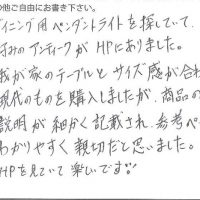 の他ご自由にお書き下さい。
ダイニング用ペンダントライトを探していて、
好みのアンティークが HPにありました。
我が家のテーブルとサイズ感が合わ
現代のものを購入しましたが、商品の
説明が細かく記載され、参考ペ
わかりやすく親切だと思いました。
HPを見ていて楽しいです!!